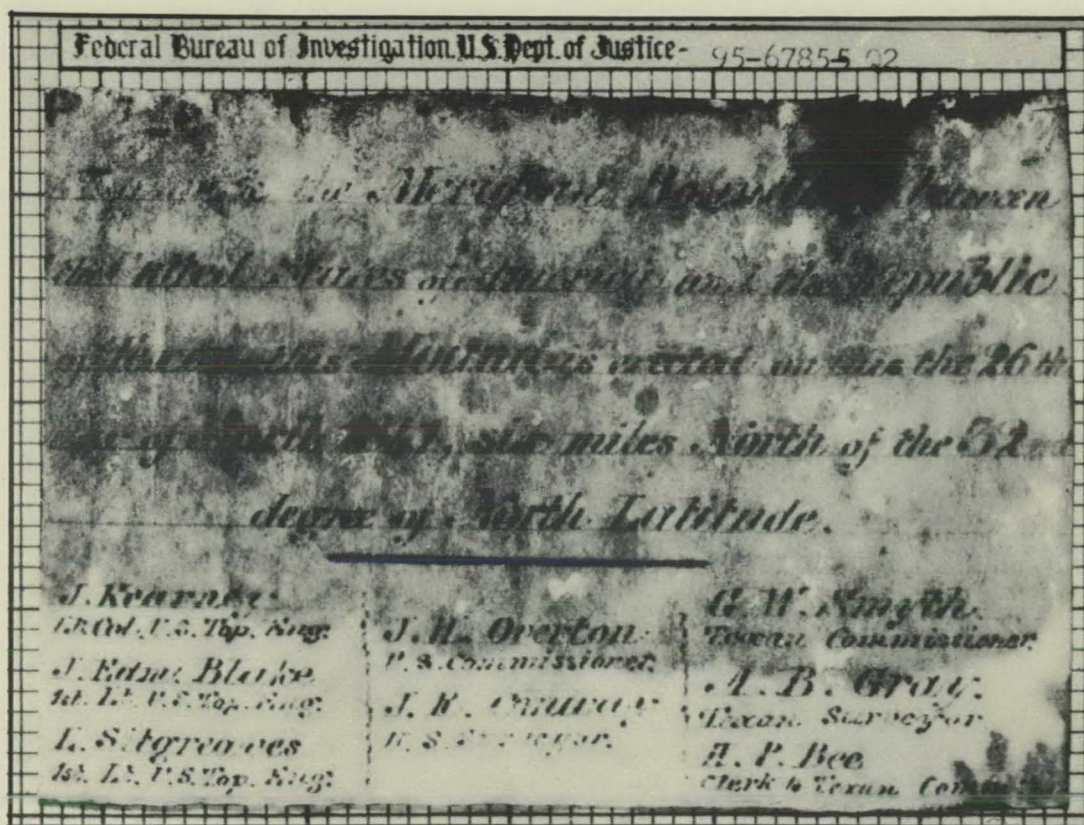 Federal Bureau of Investigation, U.S. Dept. of Justice - 95-67855 02
the Meridian between
the United States of America and the Republic
of this is erected on this the 26th
of six miles North of the 32
degree of North Latitude.
J. Kearney
Lt. Col. U.S. Top. Eng.
J. Edm. Blake
1st. Lt. U.S. Top. Eng.
L. Sitgreaves
1st. Lt. U.S. Top. Eng.
J. H. Overton
U. S. Commissioner.
J. R. Conway
U. S. Surveyor.
G. W. Smyth
Texan Commissioner
A. B. Gray.
Texan Surveyor
H. P. Bee
Clerk to Texan